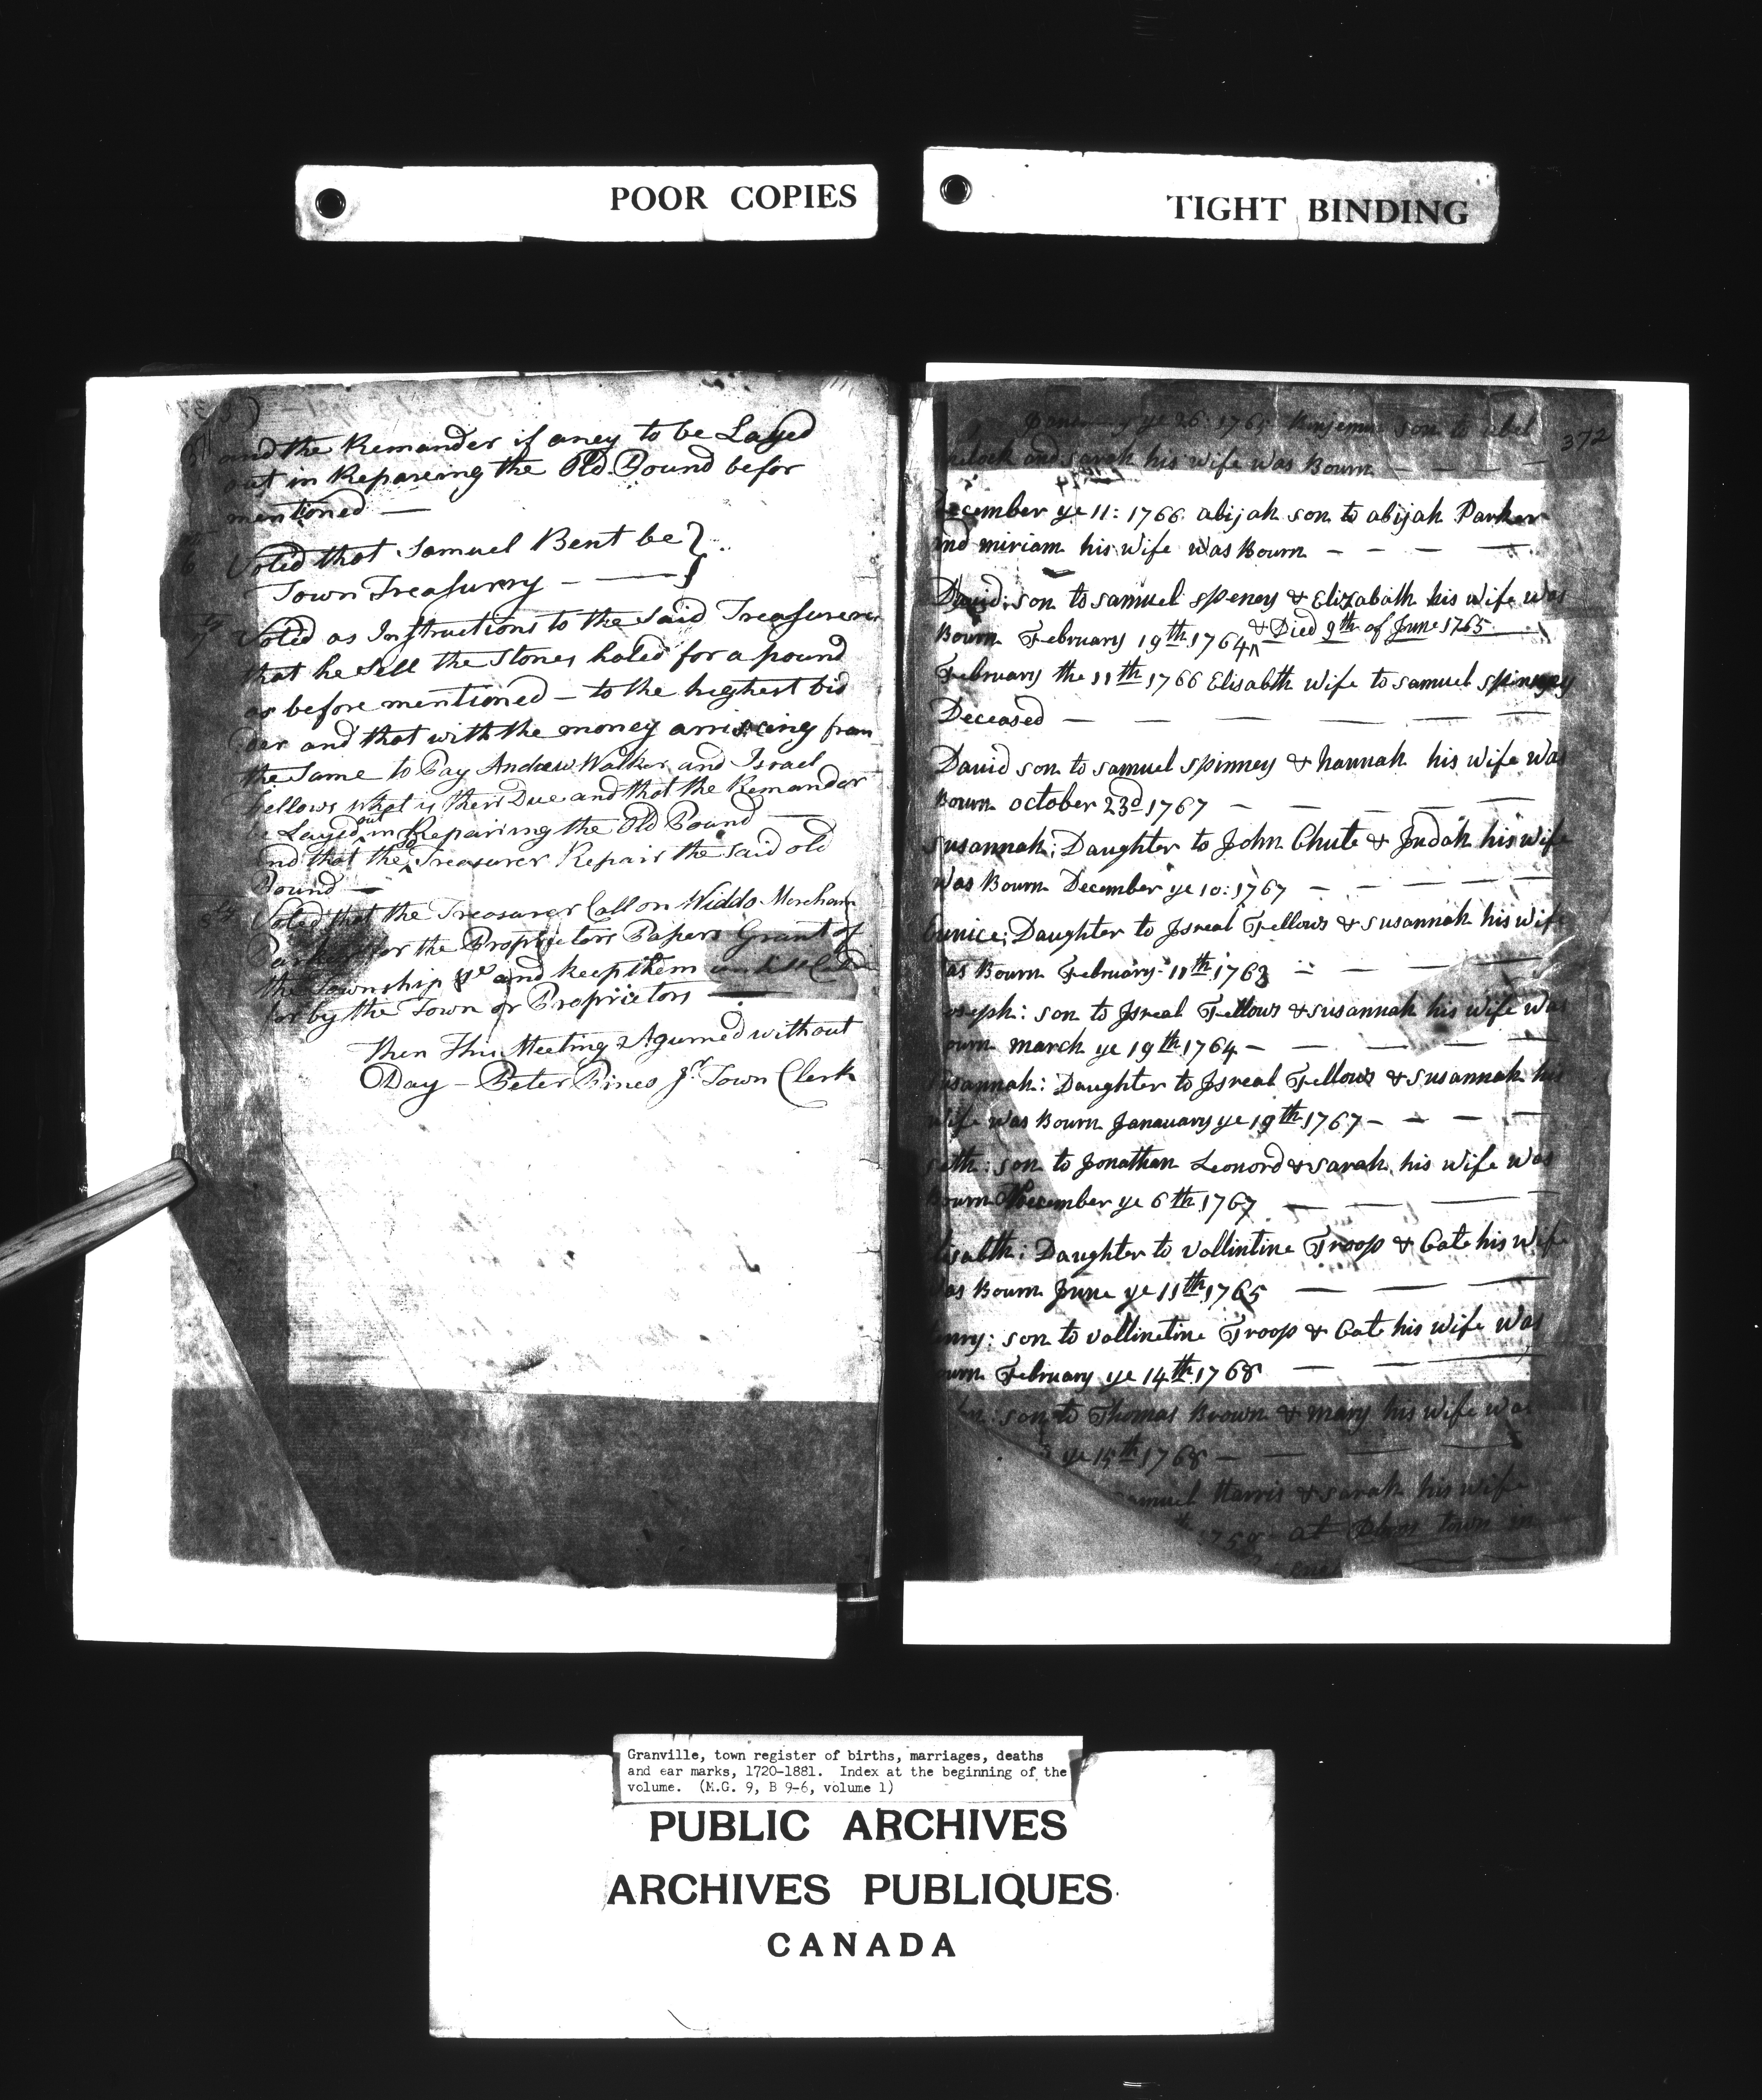 POOR COPIES
TIGHT BINDING
and the Remander if aney to be Layed
out in Repareing the Old Pound befor
mentioned —
6 Voted that Samuel Bent be
Town Treasurry — —
7 Voted as Instructions to the Said Treasurer
that he Sell the Stones haled for a pound
as before mentioned — to the highest bid
der and that with the money arriseing from
the Same to Pay Andrew Walker and Israel
Fellows what is their Due and that the Remander
be Layed out in Repairing the Old Pound —
and that the Treasurer Repair the Said old
Pound —
8 Voted that the Treasurer Call on Widdo
Parker for the Proprietors Papers Grant of
the Township and keep them
for by the Town or Proprietors —
then This Meeting Agurned without
Day — Peter Pines Jr Town Clerk
372
ye 26 1765 Benjemin son to abel
and Sarah his wife was Bourn — — —
December ye 11: 1766 abijah son to abijah Parker
and miriam his wife was Bourn — — — —
David: son to samuel speney & Elizabath his wife was
Bourn February 19th 1764 & Died 9th of June 1765
February the 11th 1766 Elisabth Wife to samuel spinney
Deceased — — — — — —
David son to samuel spinney & hannah his wife was
Bourn october 23d 1767 — — — — —
susannah: Daughter to John Chute & Judah his wife
was Bourn December ye 10: 1767 — — — —
Eunice: Daughter to Jsreal Fellows & susannah his wife
was Bourn February 11th 1763 — — — —
Joseph: son to Jsreal Fellows & susannah his wife was
Bourn march ye 19th 1764 — — — — —
susannah: Daughter to Jsreal Fellows & susannah his
wife was Bourn Janauary ye 19th 1767 — — — —
seth: son to Jonathan Leonord & sarah his wife was
Bourn December ye 6th 1767 — — —
Elisabth: Daughter to vallintine Troop & Cate his wife
was Bourn June ye 11th 1765 — — —
Henry: son to vallinetine Troop & Cate his wife was
Bourn February ye 14th 1768 — — —
son to Thomas Brown & mary his wife was
ye 15th 1768 — — — —
samuel Harris & sarah his wife
at town in
Granville, town register of births, marriages, deaths
and ear marks, 1720-1881. Index at the beginning of the
volume. (M.G. 9, B 9-6, volume 1)
PUBLIC ARCHIVES
ARCHIVES PUBLIQUES
CANADA